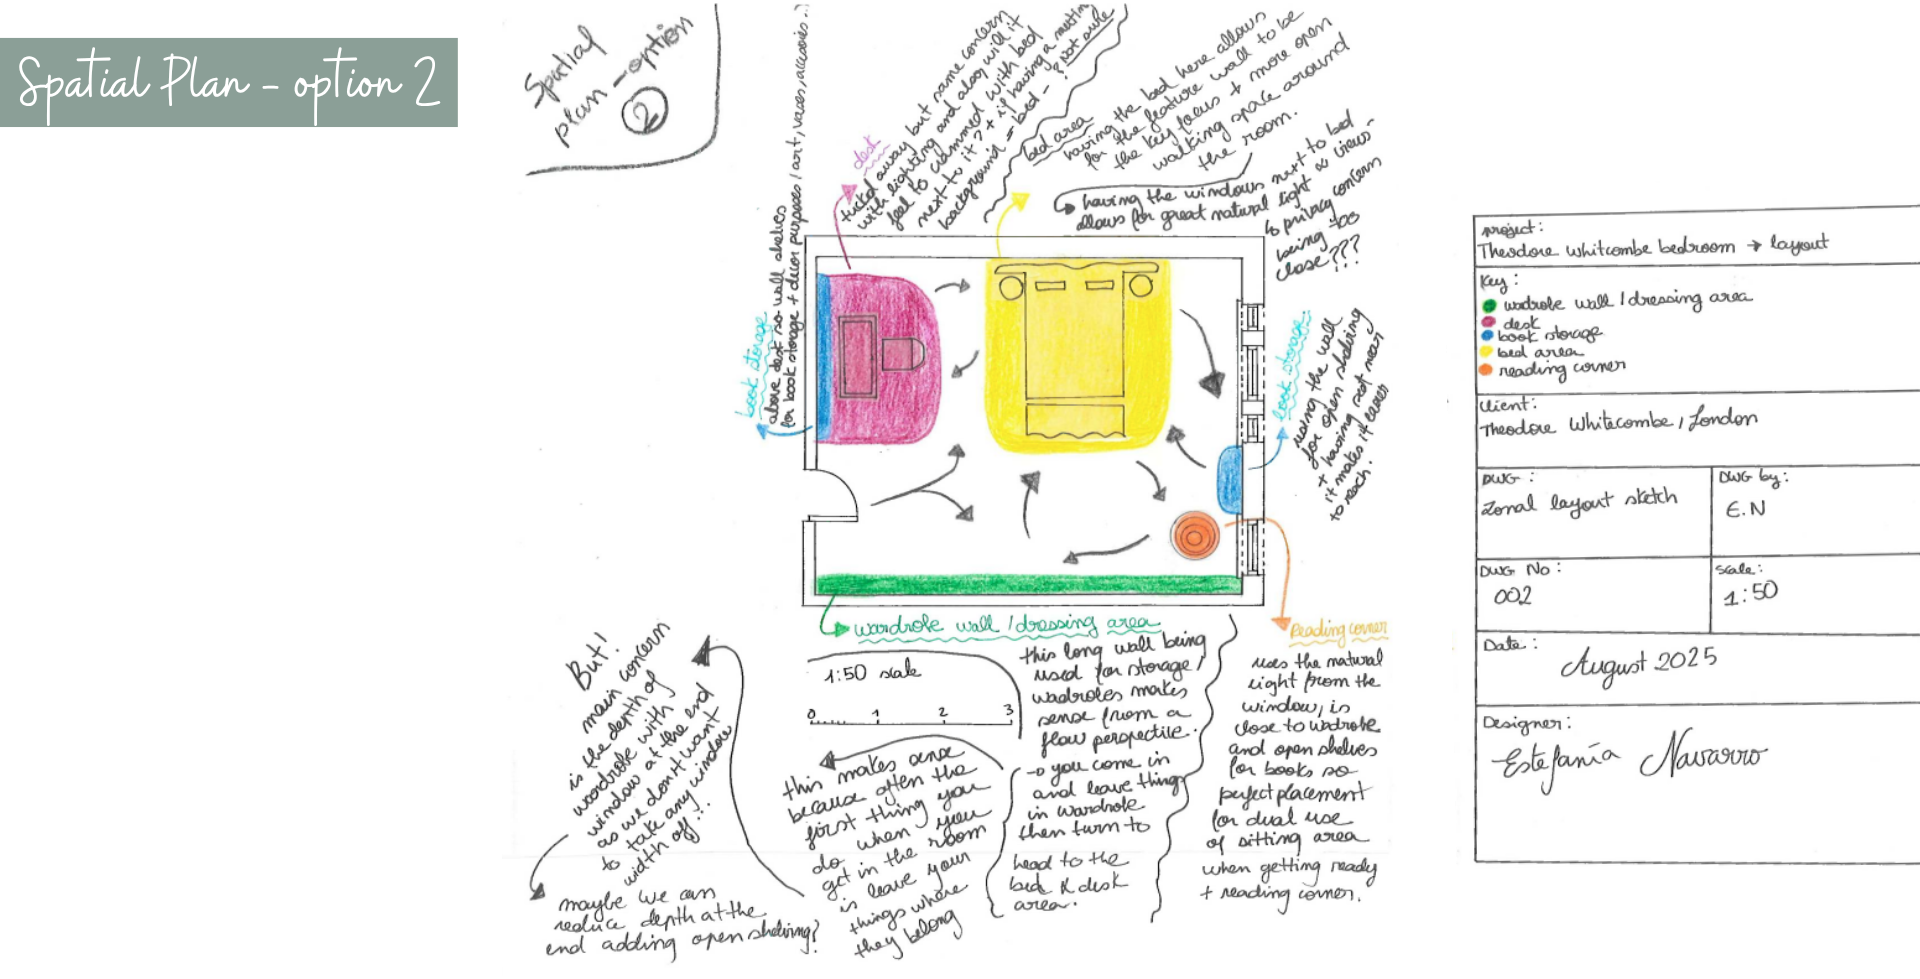 Spatial Plan - option 2
Spatial
plan - option
2
desk
tuckd away but same concern
with lighting and also will it
feel to crammed with bed
next to it? + if having a meeting
background = bed -
? Not sure
bed area
having the bed here allows
for the feature wall to be
the key focus + more open
walking space around
the room.
having the windows next to bed
allows for great natural light & views -
↳ privacy concern
being too
close???
book storage
above desk so wall shelves
for book storage + decor purposes / art, vases, accesories...
book storage:
using the wall
for open shelving
+ having seat near
it makes it easier
to reach.
wardrobe wall / dressing area
1:50 scale
0 1 2 3
Reading corner
uses the natural
light from the
window, is
close to wadrobe
and open shelves
for books so
perfect placement
for dual use
of sitting area
when getting ready
+ reading corner.
this long wall being
used for storage /
wadrobes makes
sense from a
flow perspectile.
→ you come in
and leave things
in wardrobe
then turn to
head to the
bed & desk
area.
this makes sense
because often the
first thing you
do when you
get in the room
is leave your
things where
they belong
But!
main concern
is the depth of
wardrobe with
window at the end
as we don't want
to take any window
width off!!
maybe we can
reduce depth at the
end adding open shelving?
project:
Theodore Whitcombe bedroom → layout
Key:
wadrobe wall / dressing area
desk
book storage
bed area
reading corner
Client:
Theodore Whitecombe / London
DWG:
Zonal layout sketch
DWG by:
E.N
DWG No:
002
Scale:
1:50
Date:
August 2025
Designer:
Estefanía Navarro